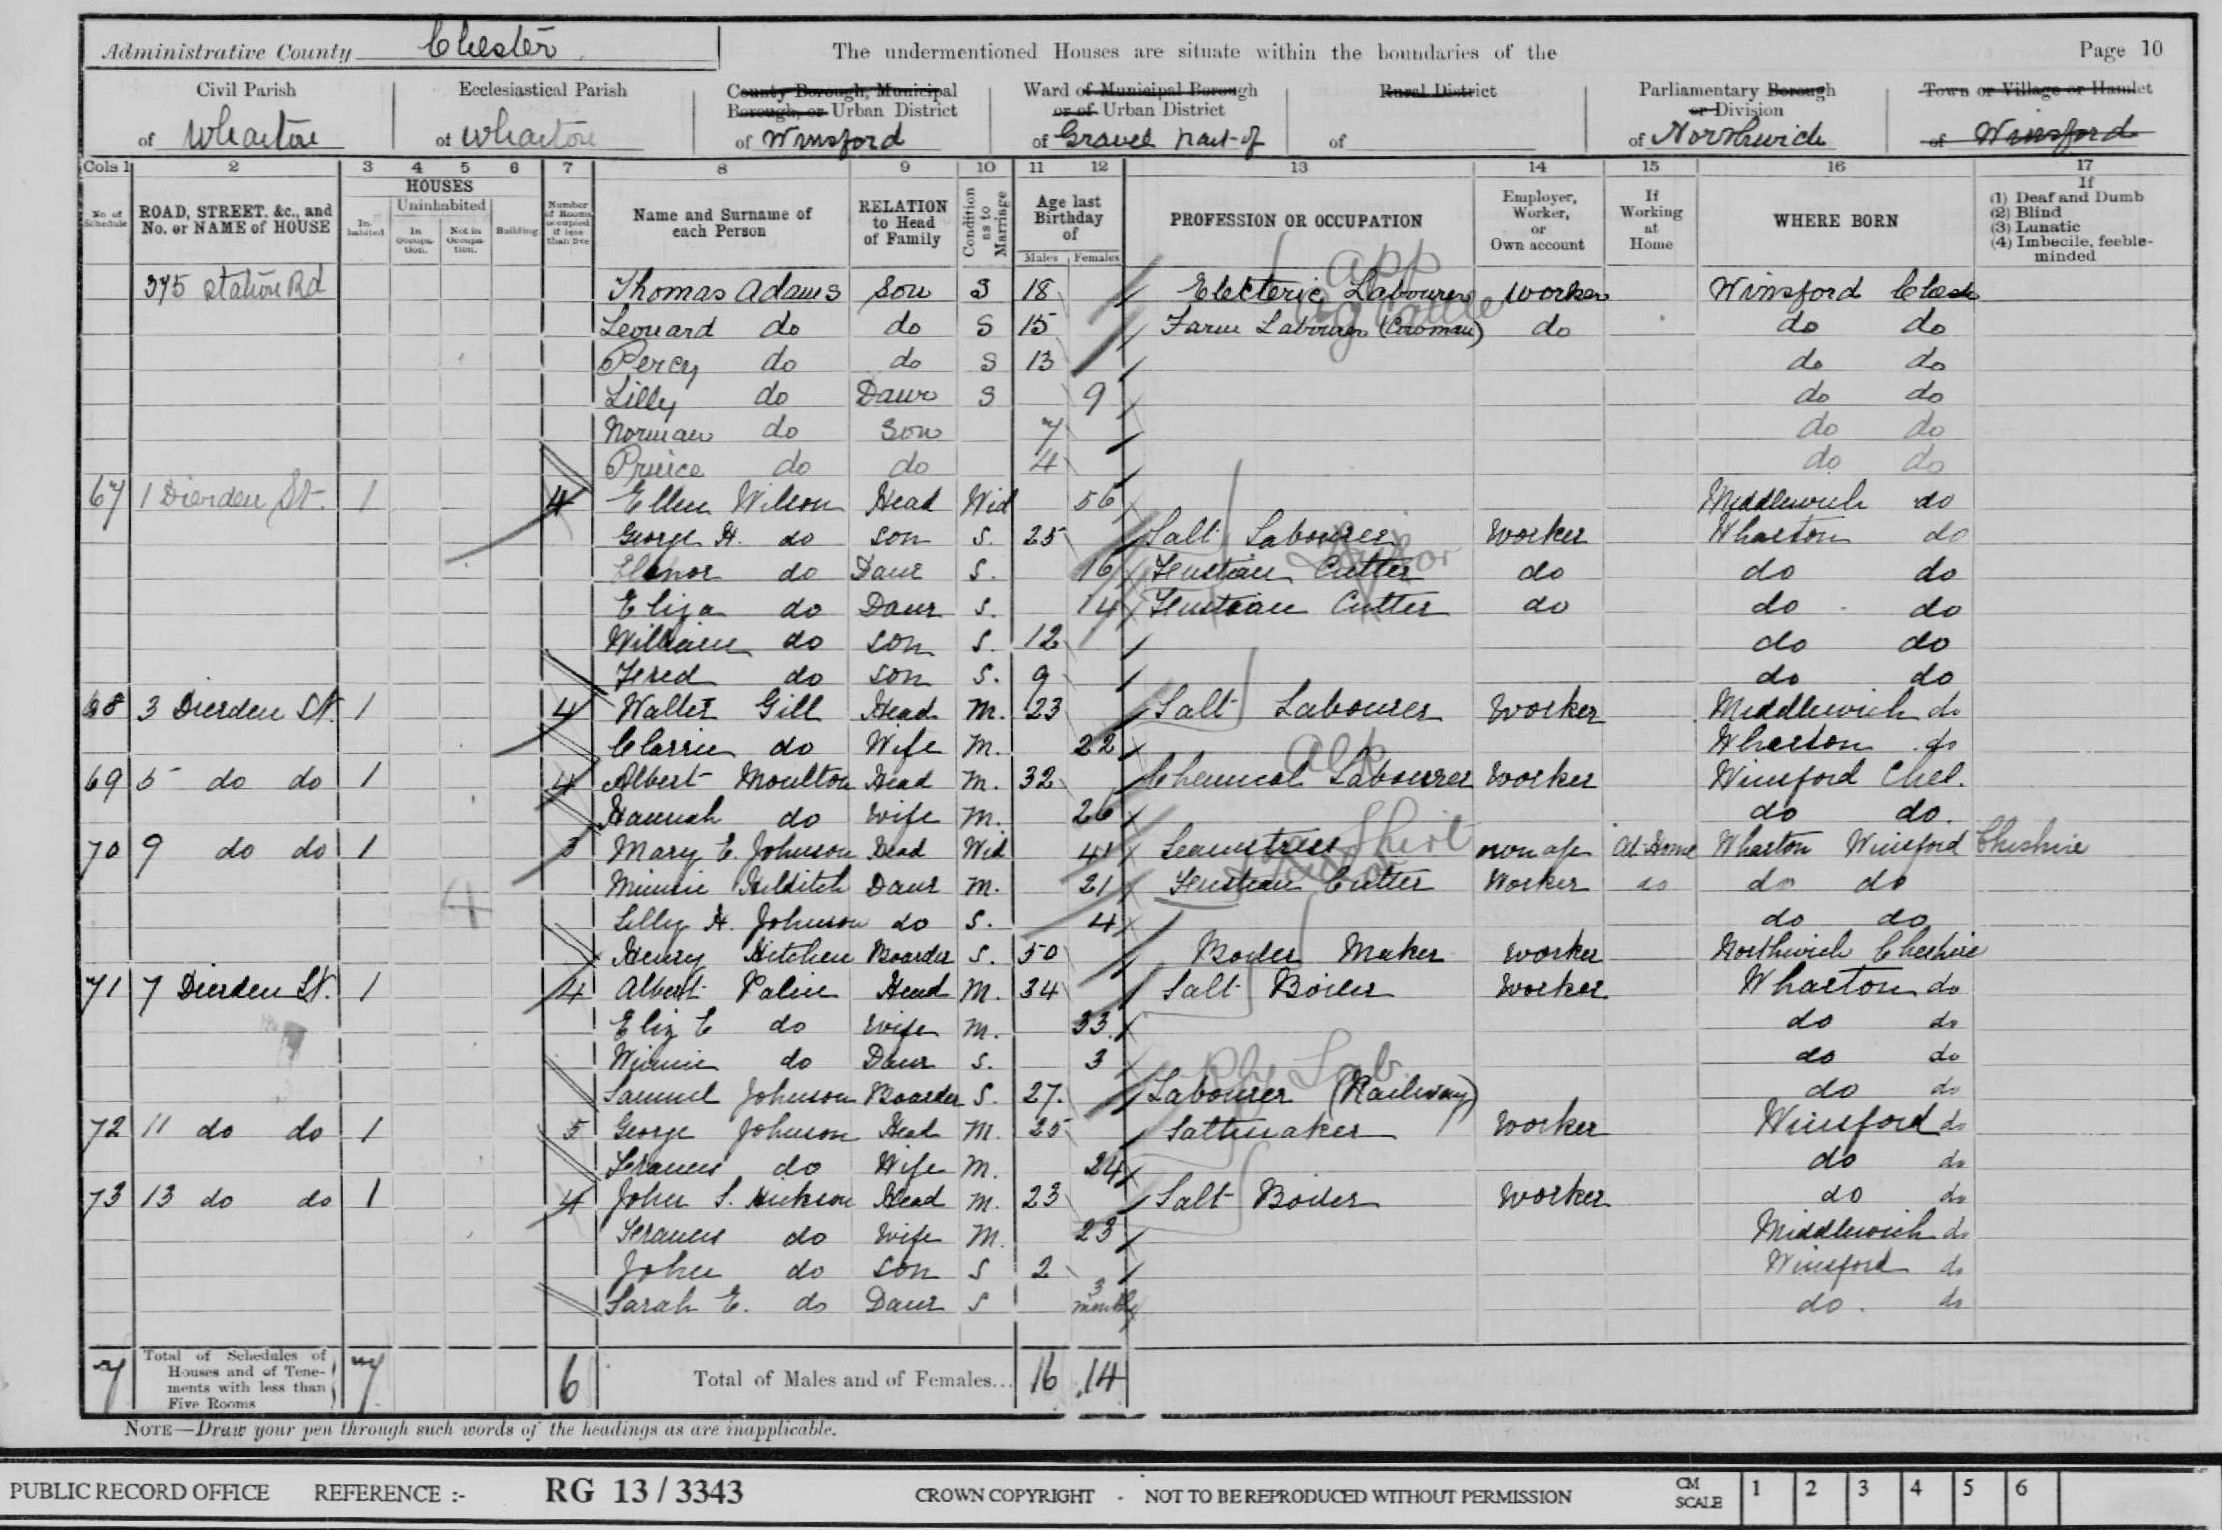 Administrative County Chester The undermentioned Houses are situate within the boundaries of the Page 10
Civil Parish of Wharton
Ecclesiastical Parish of Wharton
County Borough, Municipal Borough, or Urban District of Winsford
Ward of Municipal Borough or of Urban District of Gravel Part of
Rural District of
Parliamentary Borough or Division of Northwich
Town or Village or Hamlet of Winsford
Cols 1 2 3 4 5 6 7 8 9 10 11 12 13 14 15 16 17
No. of Schedule
ROAD, STREET, &c., and No. or NAME of HOUSE
HOUSES
Inhabited
Uninhabited
In Occupation.
Not in Occupation.
Building
Number of Rooms occupied if less than five
Name and Surname of each Person
RELATION to Head of Family
Condition as to Marriage
Age last Birthday of
Males Females
PROFESSION OR OCCUPATION
Employer, Worker, or Own account
If Working at Home
WHERE BORN
If
(1) Deaf and Dumb
(2) Blind
(3) Lunatic
(4) Imbecile, feeble-minded
375 Station Rd Thomas Adams Son S 18 Electeric Labourer Worker Winsford Ches
Leonard do do S 15 Farm Labourer (Cowman) do do do
Percy do do S 13 do do
Lilly do Daur S 9 do do
Norman do Son 7 do do
Prince do do 4 do do
67 1 Dierden St. 1 4 Ellen Wilson Head Wid 56 Middlewich do
George H. do Son S. 25 Salt Labourer Worker Wharton do
Elenor do Daur S. 16 Fustian Cutter do do do
Eliza do Daur S. 14 Fustian Cutter do do do
William do Son S. 12 do do
Fred do Son S. 9 do do
68 3 Dierden St. 1 4 Walter Gill Head M. 23 Salt Labourer Worker Middlewich do
Clarrie do Wife M. 22 Wharton do
69 5 do do 1 4 Albert Moulton Head M. 32 Chemical Labourer Worker Winsford Ches.
Hannah do Wife M. 26 do do.
70 9 do do 1 3 Mary E. Johnson Head Wid 41 Seamstress Shirt own a/c At Home Wharton Winsford Cheshire
Minnie Hilditch Daur M. 21 Fustian Cutter Worker do do do
Lilly H. Johnson do S. 4 do do
Henry Hitchen Boarder S. 50 Boiler Maker Worker Northwich Cheshire
71 7 Dierden St. 1 4 Albert Palin Head M. 34 Salt Boiler Worker Wharton do
Eliz E do Wife M. 33 do do
Winnie do Daur S. 3 do do
Samuel Johnson Boarder S. 27. Labourer (Railway) do do
72 11 do do 1 5 George Johnson Head M. 25 Saltmaker Worker Winsford do
Frances do Wife M. 24 do do
73 13 do do 1 4 John S. Hickson Head M. 23 Salt Boiler Worker do do
Frances do Wife M. 23 Middlewich do
John do Son S 2 Winsford do
Sarah E. do Daur S 3 months do. do
7 Total of Schedules of Houses and of Tenements with less than Five Rooms 7 6 Total of Males and of Females... 16 14
NOTE—Draw your pen through such words of the headings as are inapplicable.
PUBLIC RECORD OFFICE REFERENCE :- RG 13 / 3343 CROWN COPYRIGHT - NOT TO BE REPRODUCED WITHOUT PERMISSION CM SCALE 1 2 3 4 5 6